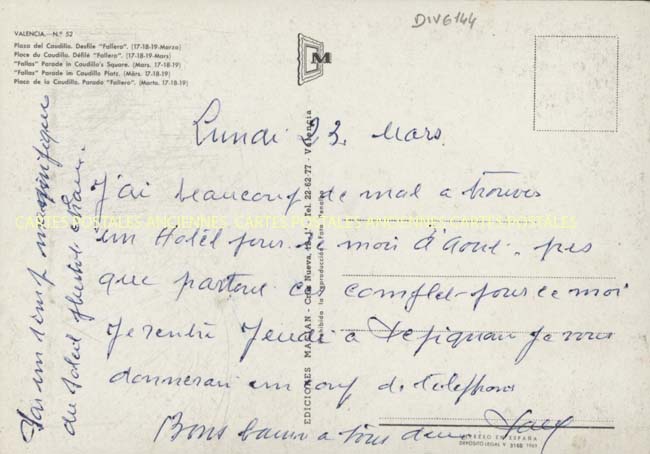 DIV6144
VALENCIA.—N.º 52
Plaza del Caudillo. Desfile "Fallero". (17-18-19-Marzo)
Place du Caudillo. Défilé "Fallero". (17-18-19-Mars)
"Fallas" Parade in Caudillo's Square. (Mars. 17-18-19)
"Fallas" Parade im Caudillo Platz. (Märs. 17-18-19)
Plaça de la Caudillo. Parada "Fallero". (Marta. 17-18-19)
M
Lundi 23. Mars.
J'ai beaucoup de mal a trouver
un Hotel pour le moi d'Aout. pres
que partout ces complet pour ce moi
Je rentre Jeudi a Je vous
donnerai un coup de telephone
Bons a tous
un temps magnifique
du soleil
EDICIONES MAIAN - Tel. 22-62-77 - Valencia
Prohibida la reproducción
IMPRESO EN ESPAÑA
DEPOSITO LEGAL V. 3168 1969
CARTES POSTALES ANCIENNES CARTES POSTALES ANCIENNES CARTES POSTALES